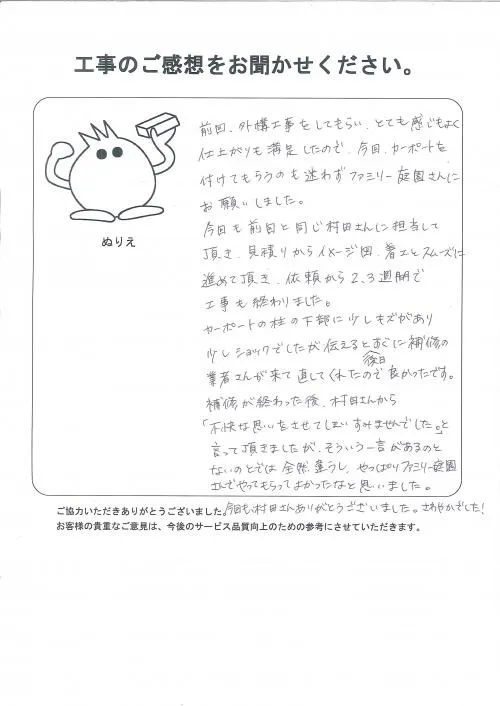 工事のご感想をお聞かせください。
ぬりえ
前回、外構工事をしてもらい、とても感じもよく
仕上がりも満足したので、今回、カーポートを
付けてもらうのも迷わずファミリー庭園さんに
お願いしました。
今回も前回と同じ村田さんに担当して
頂き、見積りからイメージ図、着工とスムーズに
進めて頂き、依頼から2、3週間で
工事も終わりました。
カーポートの柱の下部に少しキズがあり
少しショックでしたが伝えるとすぐに補修の
後日
業者さんが来て直してくれたので良かったです。
補修が終わった後、村田さんから
「不快な思いをさせてしまいすみませんでした。」と
言って頂きましたが、そういう一言があるのと
ないのとでは全然違うし、やっぱりファミリー庭園
さんでやってもらってよかったなと思いました。
ご協力いただきありがとうございました。今回も村田さんありがとうございました。さわやかでした!
お客様の貴重なご意見は、今後のサービス品質向上のための参考にさせていただきます。